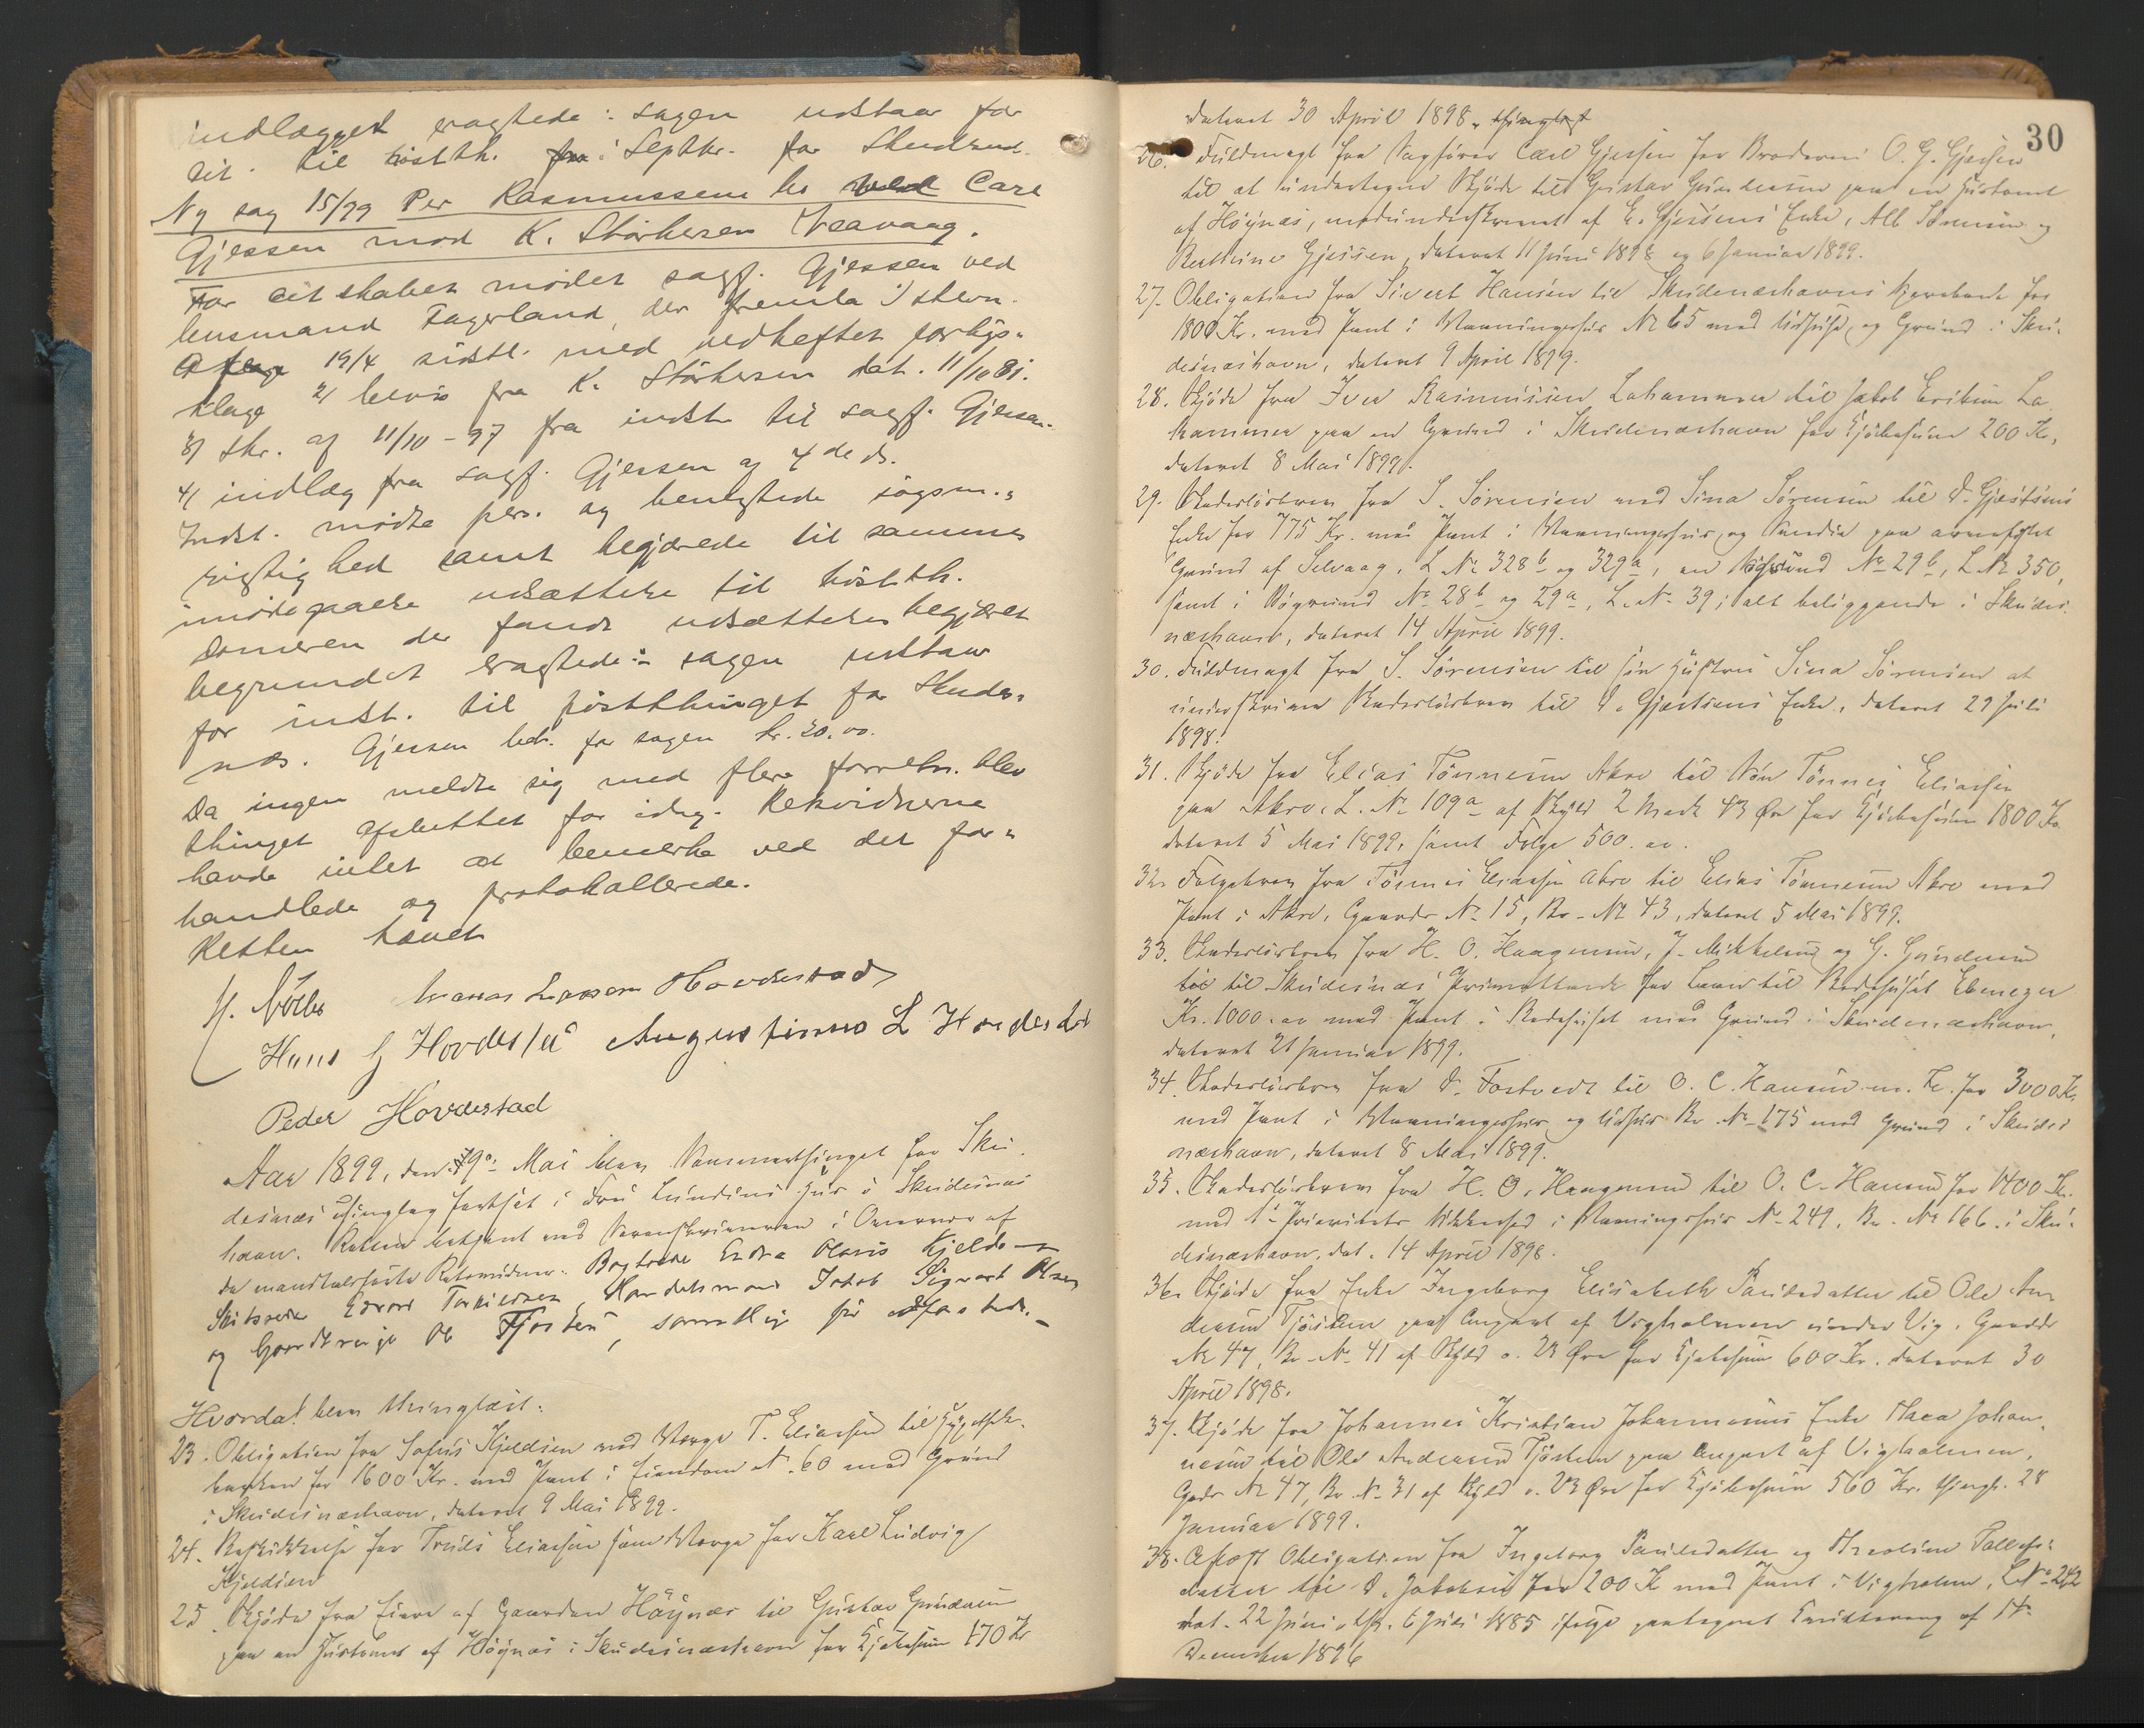 indlægget eragtede: sagen udstaar for
cit. til høstth. i Septbr. for Skudesnæs.
Ny sag 15/99 Per Rasmussens bo ved Carl
Gjessen mod K. Störkersen Veavaag.
For citskabet möder sagf. Gjessen ved
lensmand Fagerland, der freml. 1) stevn.
19/4 sidstl. med vedheftet forligs-
klage 2) bevis fra K. Störkersen dat. 11/10 81.
3) skr. af 11/10-97 fra indst. til sagf. Gjessen.
4) indlæg fra sagf. Gjessen af 4de ds.
Indst. mødte pers. og benegtede søgsm.s
rigtighed samt begjærede til sammes
imødegaaelse udsættelse til høstth.
Domeren der fandt udsættelses begjæret
begrundet eragtede: sagen udstaar
for indst. til høstthinget for Skudes-
næs. Gjessen bet. for sagen kr. 20.00.
Da ingen meldte sig med flere forretn. blev
thinget afsluttet for idag. Retsvidnerne
havde intet at bemerke ved det for-
handlede og protokollerede.
Retten hævet
Hans G Hovdestad Augustinus L Hovdestad
Peder Hovdestad
Aar 1899, den 9de Mai blev Vaarthinget for Sku-
desnæs thinglag fortsat i Fru Lundens Hus i Skudesnæs-
havn. Retten betjent med Sorenskriveren i Overvær af
de mandtalførte Retsvidner: Endre Olaus Kjelds
Edvard Torkildsen, Handelsmand Jakob Sigvart Olsen
og Gaardbruger Ole Tjøsten, samtlig før edfæstede.
Hvorda blev thinglæst:
23. Obligation fra Sofus Kjeldsen med Værge T. Eliassen til Hypothek-
banken for 1600 Kr. med Pant i Eiendom No. 60 med Grund
i Skudesnæshavn, dateret 9 Mai 1899.
24. Beskikkelse for Truls Eliassen som Værge for Karl Ludvig
Kjeldsen
25. Skjøde fra Eiere af Gaarden Høynæs til Gustav Gundersen
paa en Hustomt af Høynæs i Skudesnæshavn for Kjøbesum 170 Kr
30
dateret 30 April 1898, thinglyst
26. Fuldmagt fra Sagfører Carl Gjessen for Broderen O. G. Gjessen
til at undertegne Skjøde til Gustav Gundersen paa en Hustomt
af Høynæs, medunderskrevet af E. Gjessens Enke, Alb Sømme og
Gjessen, dateret 11 Juni 1898 og 6 Januar 1899.
27. Obligation fra Sivert Hansen til Skudesnæshavns Sparebank for
1800 Kr. med Pant i Vaaningshus No 65 med Udhuse og Grund i Sku-
desnæshavn, dateret 9 April 1899.
28. Skjøde fra Iver Rasmussen Lahammer til Jakob Eriksen La-
hammer paa en Grund i Skudesnæshavn for Kjøbesum 200 Kr,
dateret 8 Mai 1899.
29. Skadesløsbrev fra S. Sørensen med Sina Sørensen til D. Gjertsens
Enke for 775 Kr. med Pant i Vaaningshus og Smedie paa arvefæstet
Grund af Selvaag, L No 328b og 329a, en Søgrund No 29b, L No 350,
samt i Søgrund No 28b og 29a, L. No 39; alt beliggende i Skudes-
næshavn, dateret 14 April 1899.
30. Fuldmagt fra S. Sørensen til sin Hustru Sina Sørensen at
underskrive Skadesløsbrev til D. Gjertsens Enke, dateret 29 Juli
1898.
31. Skjøde fra Elias Tønnesen Akre til Søn Tønnes Eliassen
paa Akre, L. No 109a af Skyld 2 Mark 43 Øre for Kjøbesum 1800 Kr.
dateret 5 Mai 1899, samt Følge 500.00.
32. Følgebrev fra Tønnes Eliassen Akre til Elias Tønnesen Akre med
Pant i Akre, Gaards No 15, Br. No 43, dateret 5 Mai 1899.
33. Skadesløsbrev fra H. O. Haagensen, J. Mikkelsen og G. Gundersen
til Skudesnæs for Laan til Bedehuset Ebenezer
Kr. 1000.00 med Pant i Bedehuset med Grund i Skudesnæshavn,
dateret 21 Januar 1899.
34. Skadesløsbrev fra D. Tostvedt til O. C. Hansen m. Fl. for 3000 Kr
med Pant i Vaaningshus og Udhus Br. No 175 med Grund i Skudes-
næshavn, dateret 8 Mai 1899.
35. Skadesløsbrev fra H. O. Haagensen til O. C. Hansen for 1400 Kr.
med 1ste Prioritets Sikkerhed i Vaaningshus No 249, Br. No 166 i Sku-
desnæshavn, dat. 14 April 1898.
36. Skjøde fra Enke Ingeborg Elisabeth Paulsdatter til Ole An-
dersen Tjøsten paa Anpart af Vigholmen under Vig, Gaards
No 47, Br. No 41 af Skyld 0.28 Øre for Kjøbesum 600 Kr. dateret 30
April 1898.
37. Skjøde fra Johannes Kristian Johannesens Enke Maca Johan-
nesen til Ole Andersen Tjøsten paa Anpart af Vigholmen,
Gards No 47, Br. No 31 af Skyld 0.28 Øre for Kjøbesum 560 Kr. thingl. 28
Januar 1899.
38. Aflyst Obligation fra Ingeborg Paulsdatter og Tallefs-
datter til D. Jakobsen for 200 Kr med Pant i Vigholmen, L No 242
dat. 22 Juni, thl. 6 Juli 1885 ifølge paategnet Kvittering af 14
December 1896